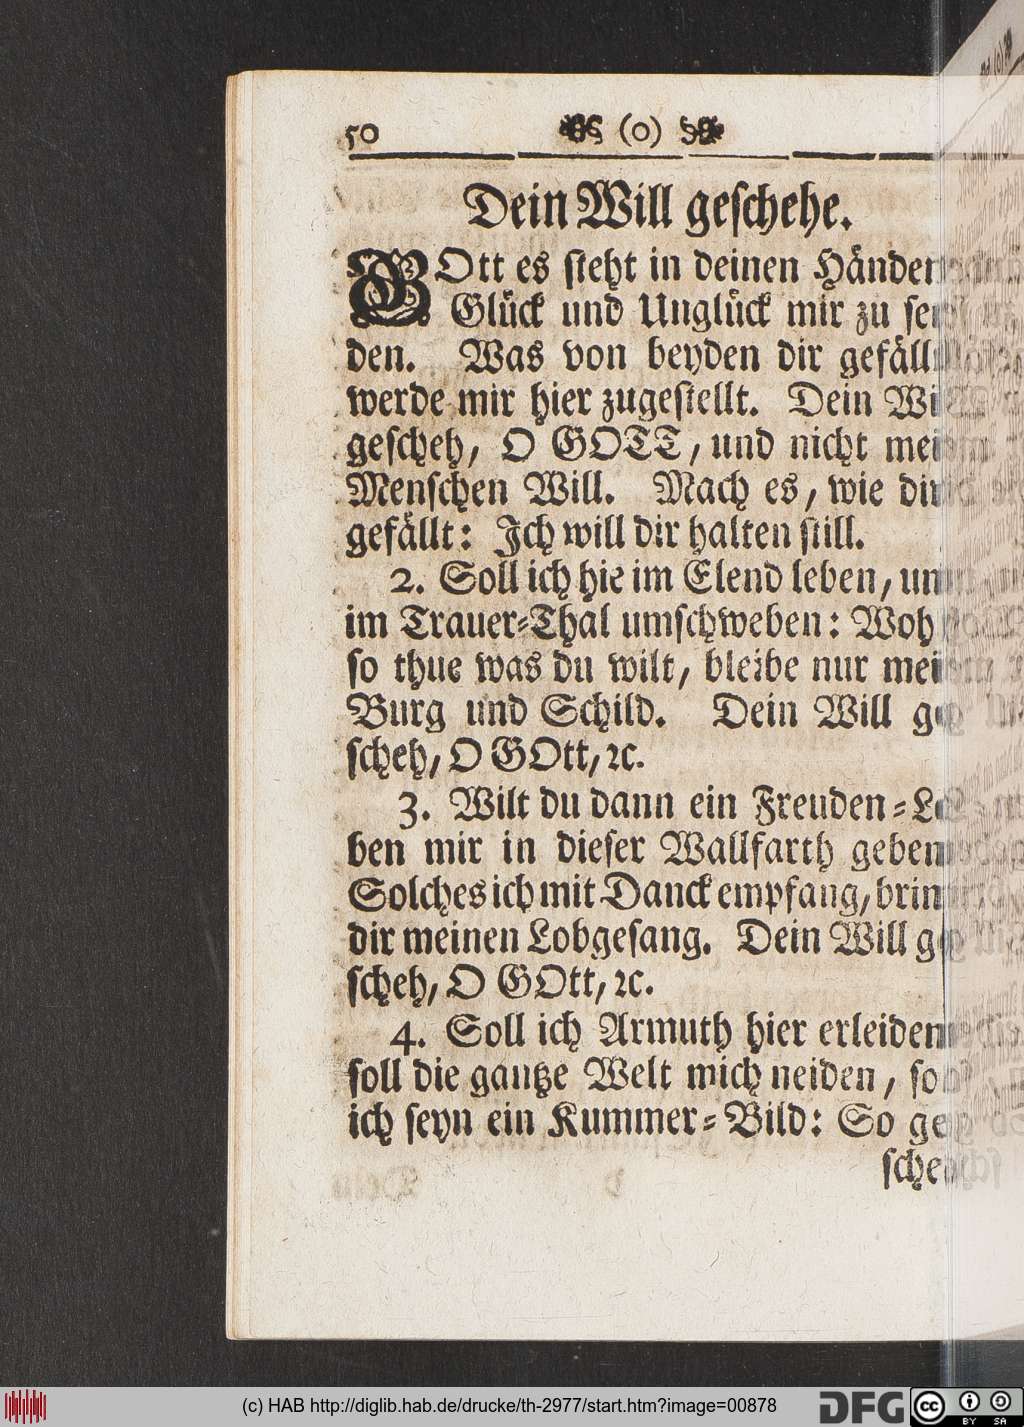 50 (o)
Dein Will geschehe.
GOtt es steht in deinen Händen
Glück und Unglück mir zu sen
den. Was von beyden dir gefäll
werde mir hier zugestellt. Dein Wi
gescheh, O GOTT, und nicht mein
Menschen Will. Mach es, wie dir
gefällt: Ich will dir halten still.
2. Soll ich hie im Elend leben, un
im Trauer-Thal umschweben: Woh
so thue was du wilt, bleibe nur mein
Burg und Schild. Dein Will ge
scheh, O GOtt, ꝛc.
3. Wilt du dann ein Freuden-Le
ben mir in dieser Wallfarth geben
Solches ich mit Danck empfang, brin
dir meinen Lobgesang. Dein Will ge
scheh, O GOtt, ꝛc.
4. Soll ich Armuth hier erleiden
soll die gantze Welt mich neiden, so
ich seyn ein Kummer-Bild: So ge
sche
(c) HAB http://diglib.hab.de/drucke/th-2977/start.htm?image=00878
DFG cc BY SA